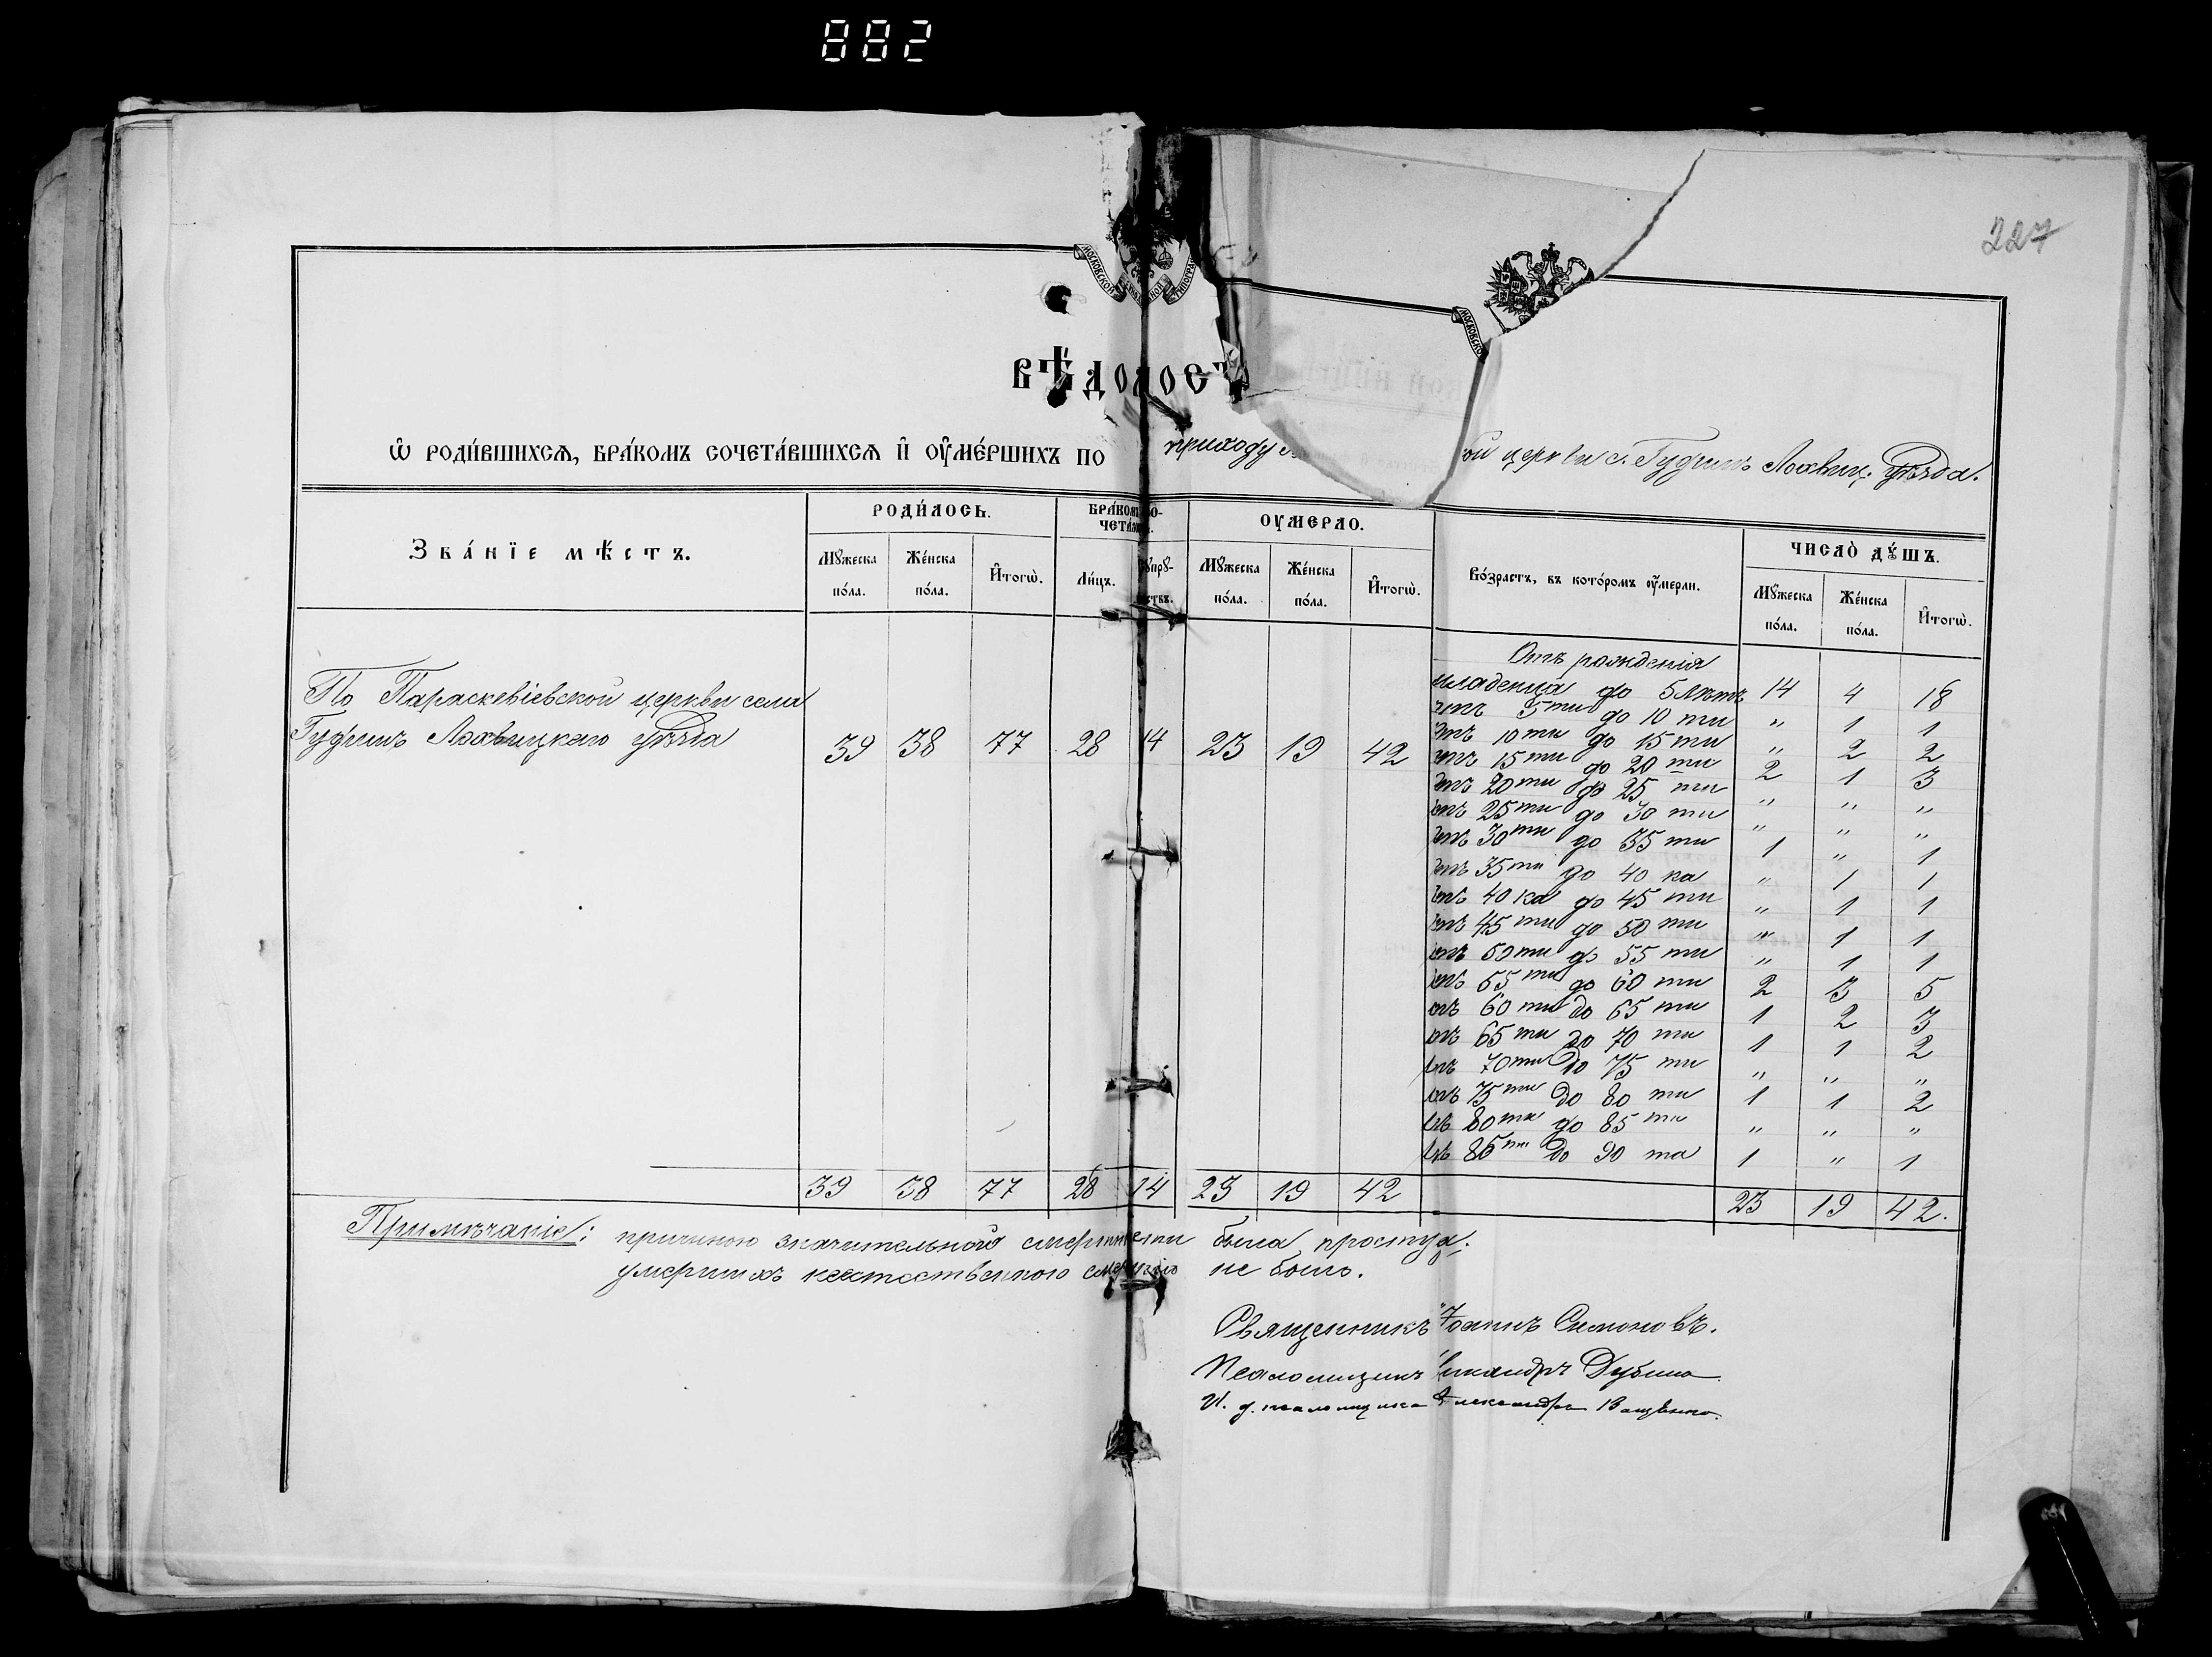 882
227
МОСКОВСКОЙ
ТИПОГРАФ
МОСКОВСКО
ВѢДОМОСТ
Ѡ РОДИ́ВШИХСѦ, БРА́КОМЪ СОЧЕТА́ВШИХСѦ И҆ ОУ҆МЕ́РШИХЪ ПО приходу церкви с. Гудимъ Лохвиц. уѣзда.
Зва́нїе мѣ́стъ.
РОДИ́ЛОСЬ.
Мꙋжеска по́ла.
Же́нска по́ла.
И҆тогѡ̀.
БРА́КОМЪ СО-
ЧЕТА́ЛОСЬ.
Ли́цъ.
Сꙋпрꙋ-
ствъ.
ОУМЕРЛО.
Мꙋжеска по́ла.
Же́нска по́ла.
И҆тогѡ̀.
Во́зрастъ, въ кото́ромъ ᲂу҆́мерли.
ЧИСЛО̀ ДꙊ́ШЪ.
Мꙋжеска по́ла.
Же́нска по́ла.
И҆тогѡ̀.
По Параскевіевской церкви села
Гудимъ Лохвицкаго уѣзда 39 38 77 28 14 23 19 42
Отъ рожденія
младенца до 5 лѣтъ 14 4 18
отъ 5 ти до 10 ти " 1 1
отъ 10 ти до 15 ти " 2 2
отъ 15 ти до 20 ти 2 1 3
отъ 20 ти до 25 ти " " "
отъ 25 ти до 30 ти " " "
отъ 30 ти до 35 ти 1 " 1
отъ 35 ти до 40 ка " 1 1
отъ 40 ка до 45 ти " 1 1
отъ 45 ти до 50 ти " 1 1
отъ 50 ти до 55 ти " 1 1
отъ 55 ти до 60 ти 2 3 5
отъ 60 ти до 65 ти 1 2 3
отъ 65 ти до 70 ти 1 1 2
отъ 70 ти до 75 ти " " "
отъ 75 ти до 80 ти 1 1 2
отъ 80 ти до 85 ти " " "
отъ 85 ти до 90 та 1 " 1
39 38 77 28 14 23 19 42 23 19 42.
Примѣчаніе: причиною значительной смертности была простуда;
умершихъ неестественною смертію не было.
Священникъ Іоаннъ Симоновъ.
Псаломщикъ Никандръ Дубина
И. д. псаломщика Александръ Ващенко.